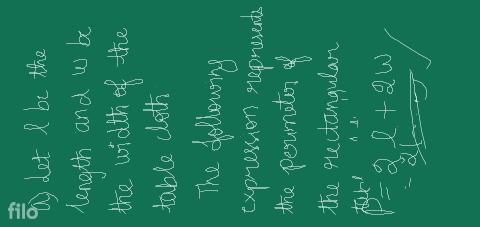 b) let l be the
length and w be
the width of the
table cloth
The following
expression represents
the perimeter of
the rectangular
P = 2l + 2w
filo